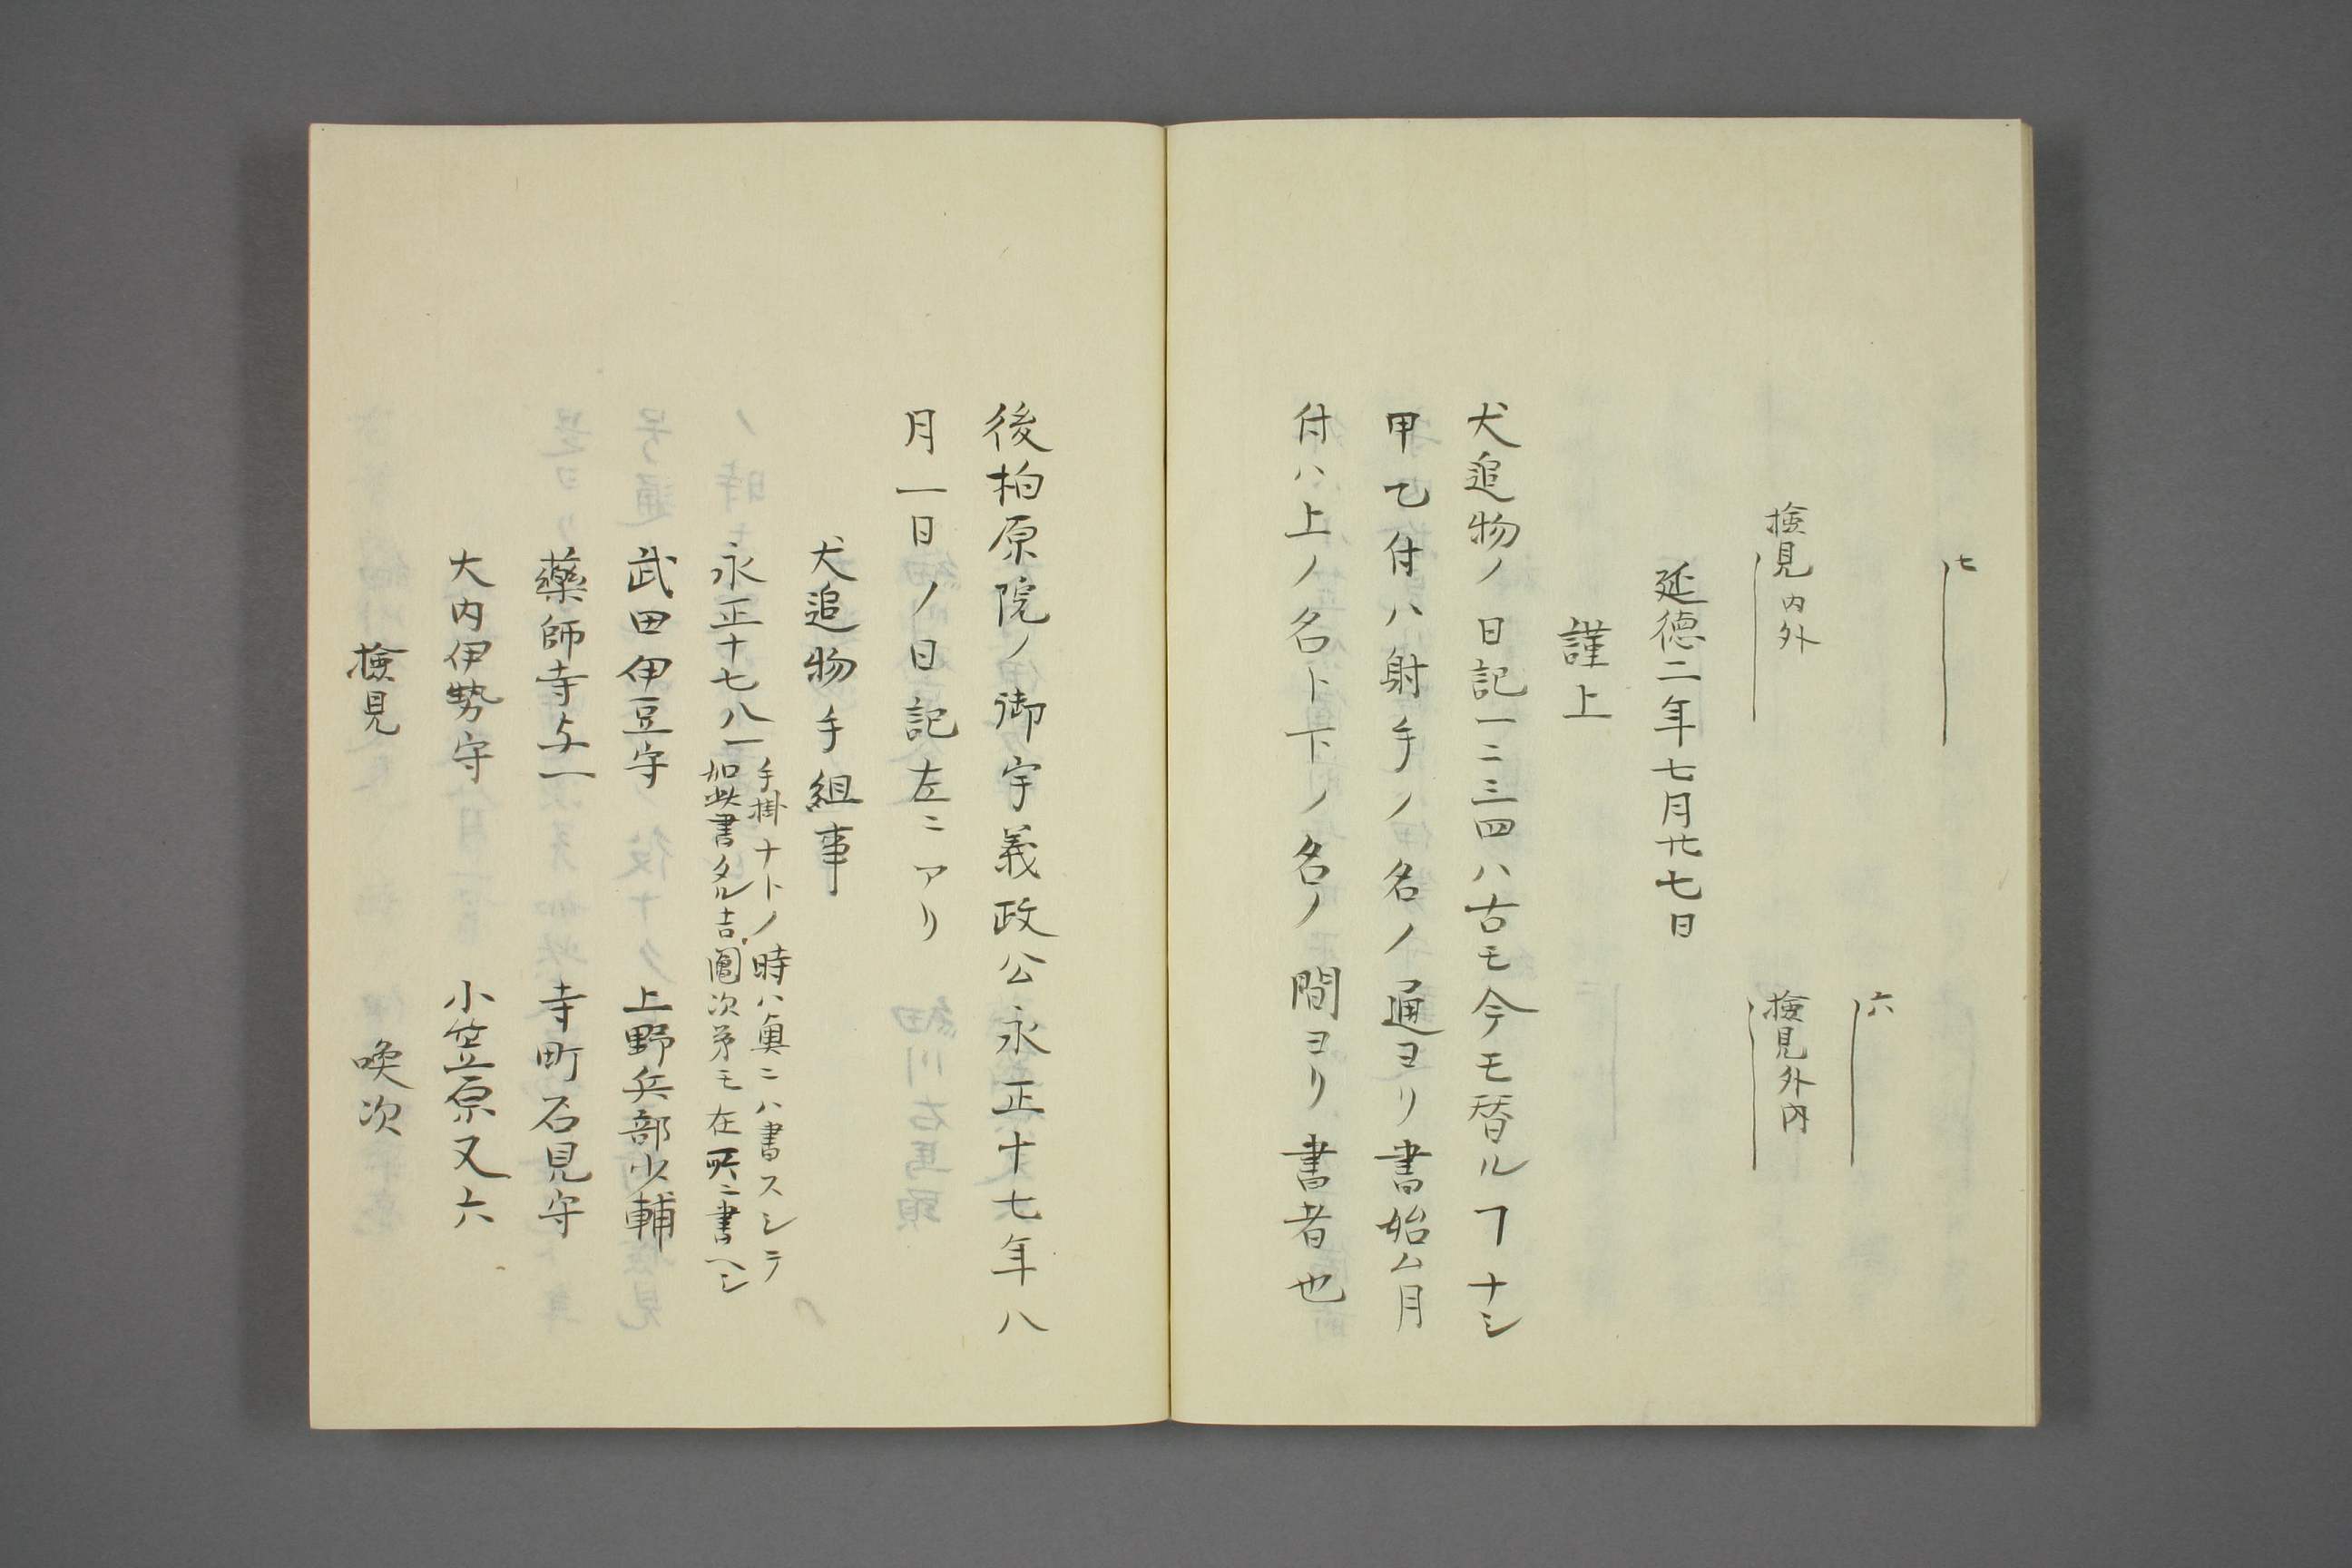 七
六
検見内外
検見外内
延徳二年七月廿七日
謹上
犬追物ノ日記一二三四ハ古モ今モ替ルヿナシ
甲乙付ハ射手ノ名ノ通ヨリ書始ム月
付ハ上ノ名ト下ノ名ノ間ヨリ書者也
後柏原院ノ御宇義政公永正十七年八
月一日ノ日記左ニアリ
犬追物手組事
永正十七八一
手掛ナトノ時ハ奥ニハ書スシテ
如此書タル吉圖次第モ在所ニ書ヘシ
武田伊豆守
上野兵部少輔
藥師寺与一
寺町石見守
大内伊勢守
小笠原又六
検見
喚次